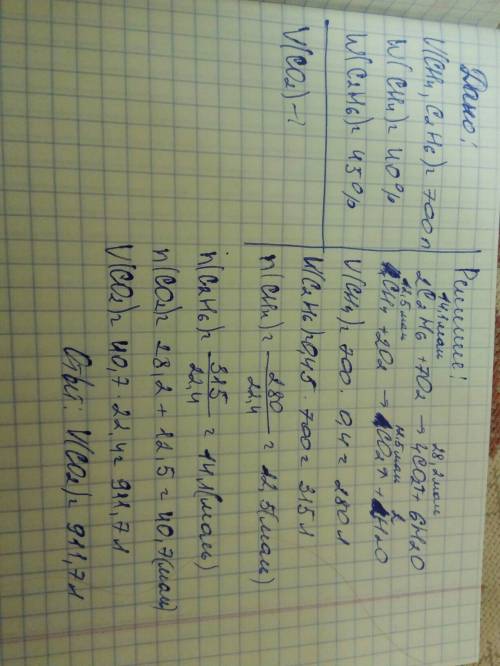 Дано:
V(CH4, C2H6) = 700 л
W(CH4) = 40%
W(C2H6) = 45%
V(CO2) - ?
Решение:
14,1 моль 28,2 моль
2C2H6 + 7O2 → 4CO2↑ + 6H2O
12,5 моль 12,5 моль
CH4 + 2O2 → CO2↑ + 2H2O
V(CH4) = 700 · 0,4 = 280 л
V(C2H6) = 0,45 · 700 = 315 л
n(CH4) = 280/22,4 = 12,5 (моль)
n(C2H6) = 315/22,4 = 14,1 (моль)
n(CO2) = 28,2 + 12,5 = 40,7 (моль)
V(CO2) = 40,7 · 22,4 = 911,7 л
Ответ: V(CO2) = 911,7 л